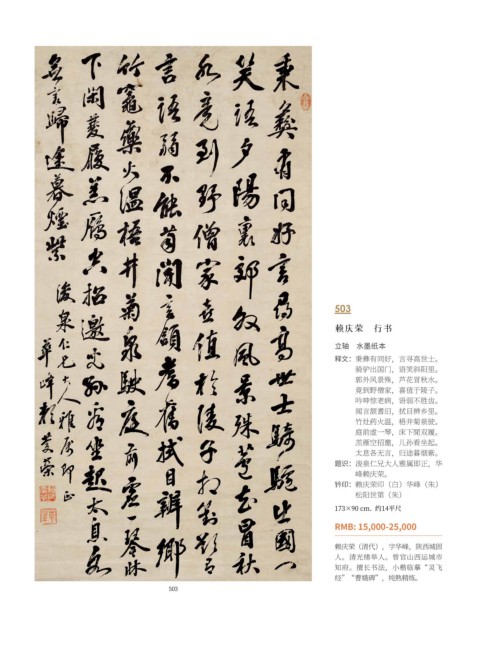 秉彝有同好言尋高世士騎驢出國門
笑語夕陽裏郊外風景殊蘆花冒秋
水竟到野僧家喜值於陵子
言語弱不能齒聞言頷耆舊拭目辨鄉
竹竈藥火溫梧井菊泉駛庭前虛一琴牀
下閑雙履羔雁空招邀兒孫看坐起太息各
無言歸途暮煙紫
浚泉仁兄大人雅屬即正
華峰賴慶榮
503
503
赖庆荣 行书
立轴 水墨纸本
释文：秉彝有同好，言寻高世士。
骑驴出国门，语笑斜阳里。
郊外风景殊，芦花冒秋水。
竟到野僧家，喜值于陵子。
吟呻惊老病，语弱不胜齿。
闻言颔耆旧，拭目辨乡里。
竹灶药火温，梧井菊泉驶。
庭前虚一琴，床下闲双履。
羔雁空招邀，儿孙看坐起。
太息各无言，归途暮烟紫。
题识：浚泉仁兄大人雅属即正，华
峰赖庆荣。
钤印：赖庆荣印（白）华峰（朱）
松阳世第（朱）
173×90 cm. 约14平尺
RMB: 15,000-25,000
赖庆荣（清代），字华峰，陕西城固
人。清光绪举人。曾官山西运城市
知府。擅长书法，小楷临摹“灵飞
经”“曹娥碑”，纯熟精炼。